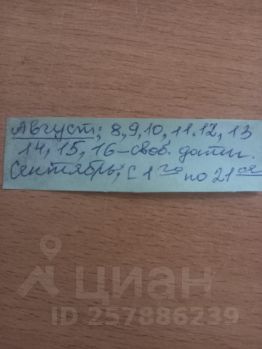 Август; 8,9,10, 11.12, 13
14, 15, 16 – своб. даты.
Сентябрь; с 1 го по 21 ое
циан
ID 257886239